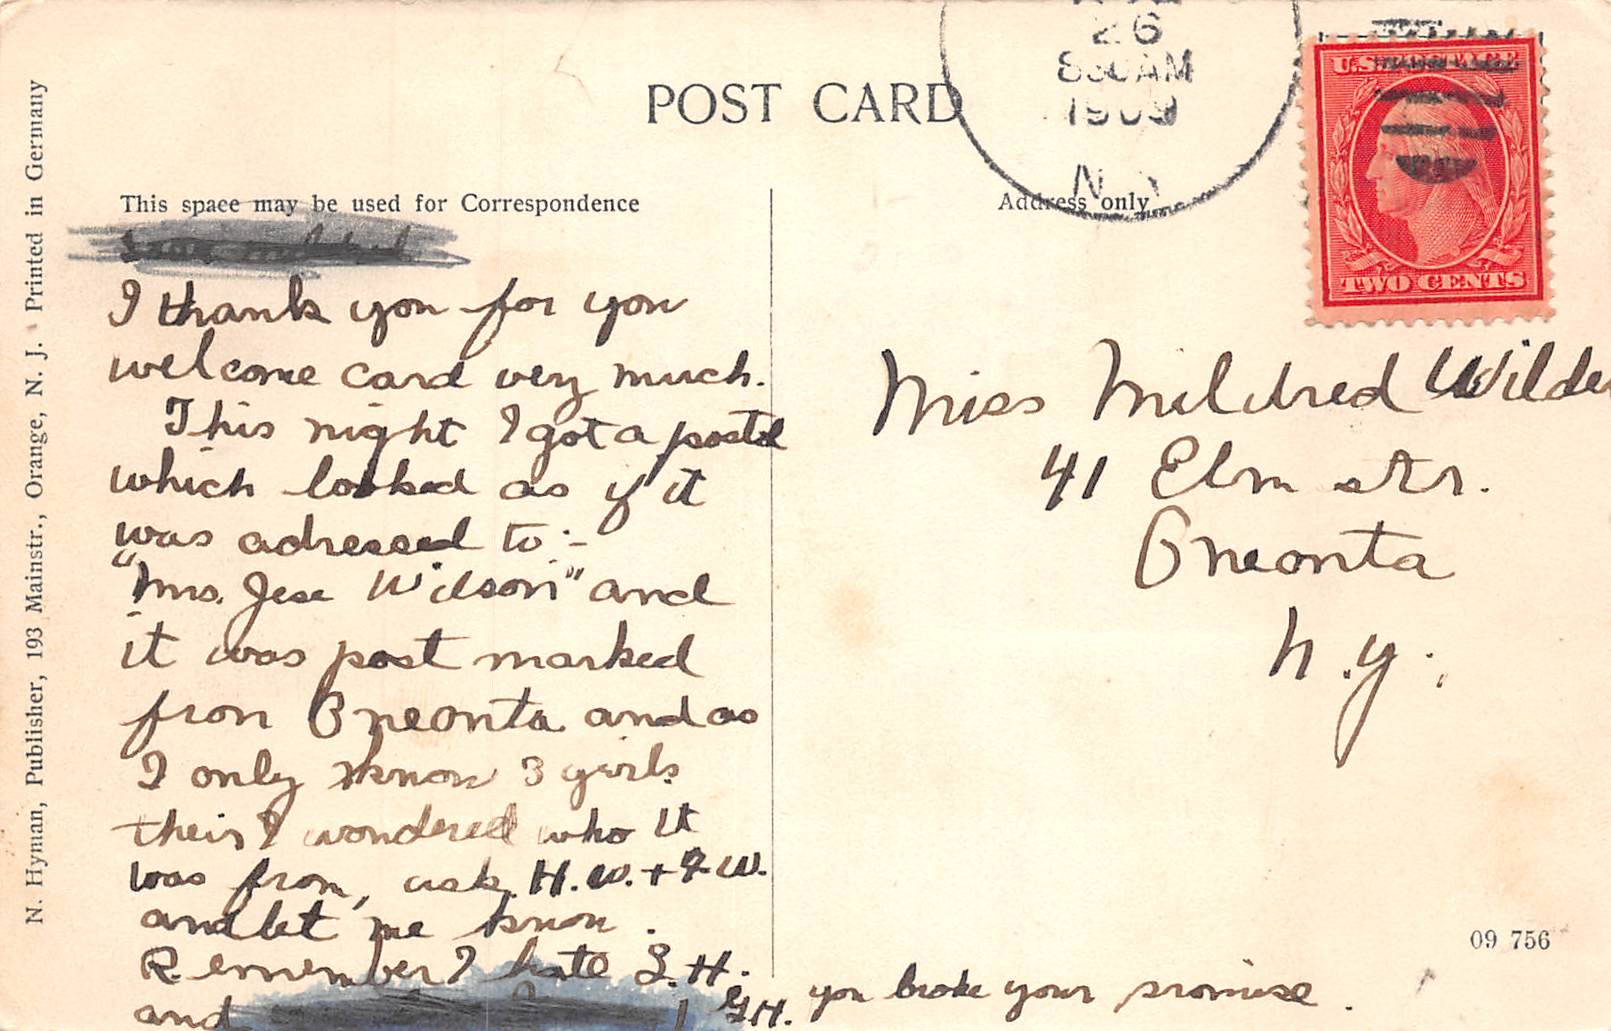 POST CARD
26
830AM
1909
N.
U.S. POSTAGE
TWO CENTS
This space may be used for Correspondence
Address only
I thank you for you
welcome card very much.
This night I got a postal
which looked as if it
was adressed to :-
"Mrs. Jese Wilson" and
it was post marked
fron Oneonta and as
I only know 3 girls
their I wondered who it
was from, ask H.W. + F.W.
and let me know.
Remember I hate G.H.
and G.H. you broke your promise.
Miss Mildred Wilde
41 Elm str.
Oneonta
N.Y.
09 756
N. Hyman, Publisher, 193 Mainstr., Orange, N. J. Printed in Germany